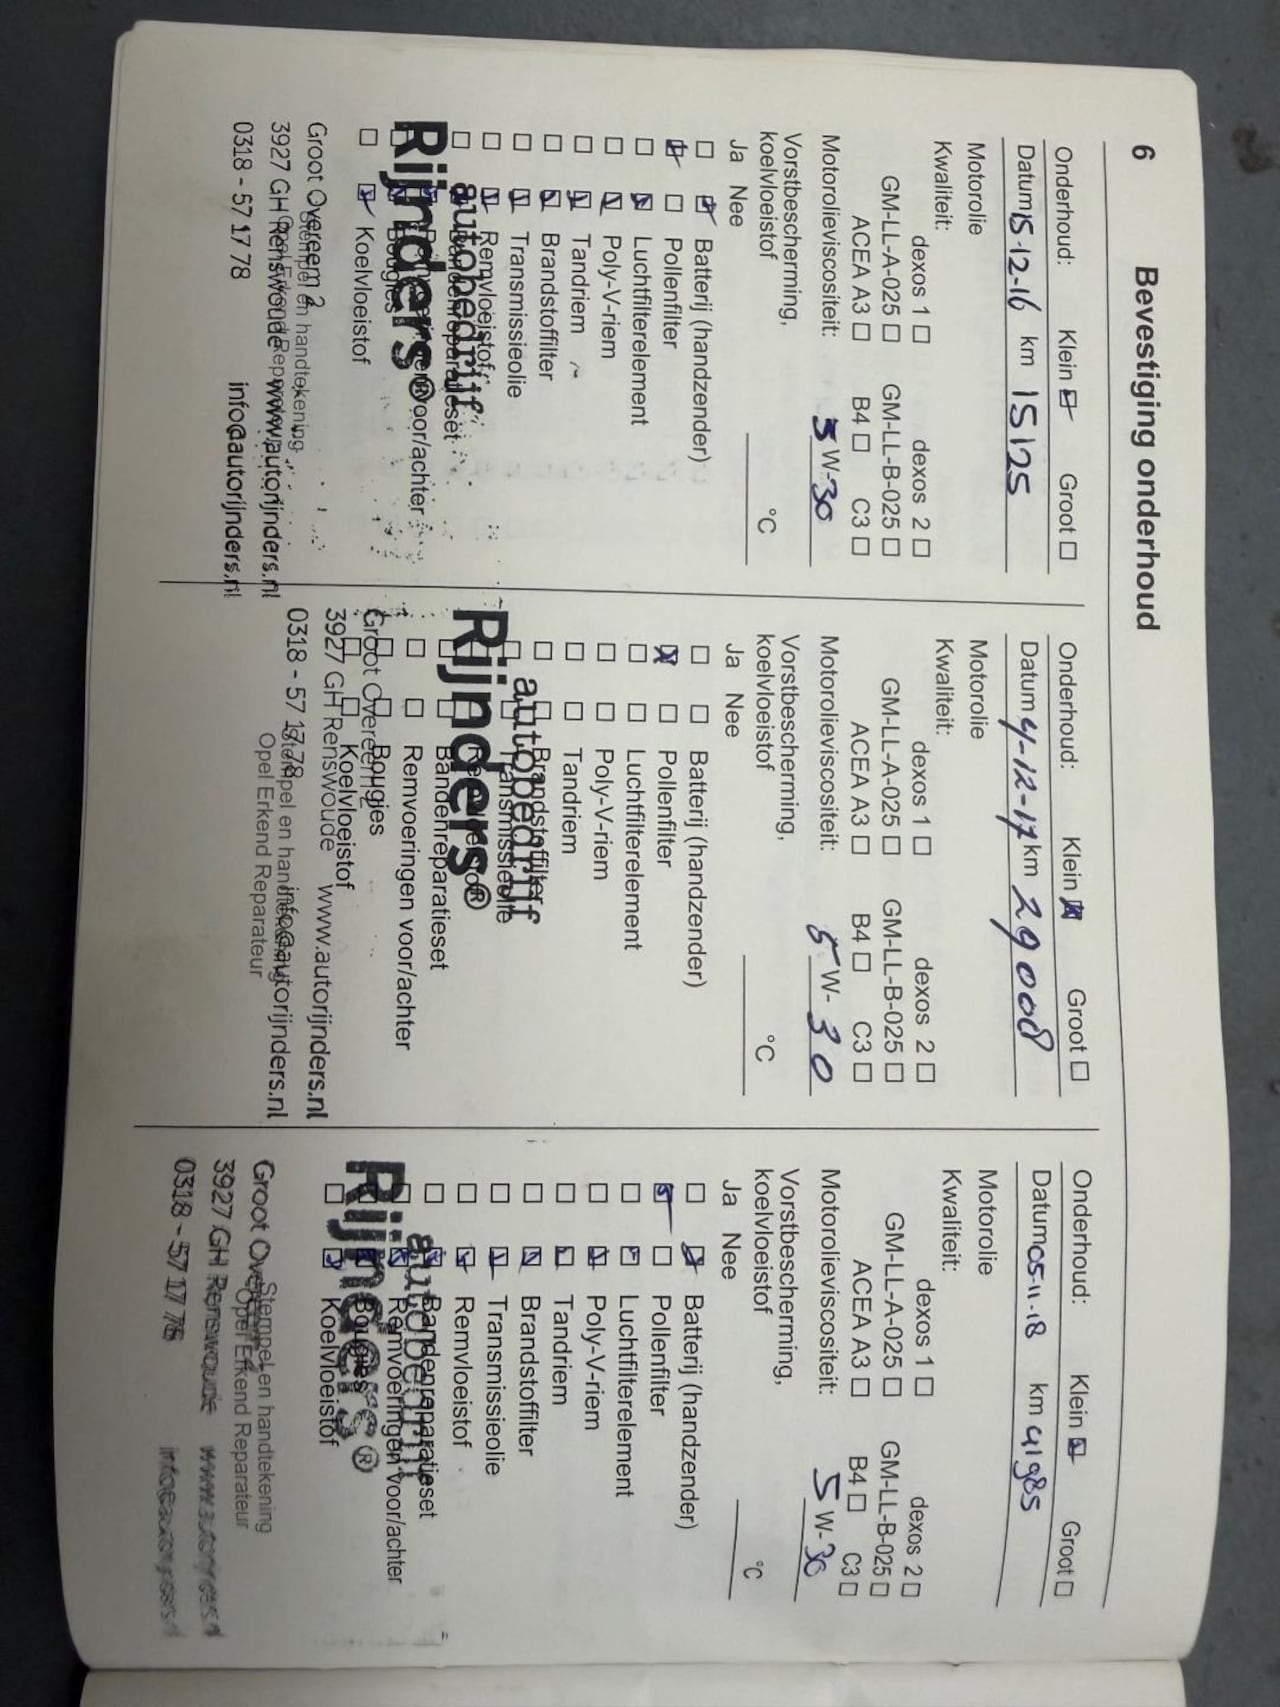 6 Bevestiging onderhoud
Onderhoud: Klein ☑ Groot ☐
Datum 15-12-16 km 15125
Motorolie
Kwaliteit:
dexos 1 ☐ dexos 2 ☐
GM-LL-A-025 ☐ GM-LL-B-025 ☐
ACEA A3 ☐ B4 ☐ C3 ☐
Motorolieviscositeit: 5 W-30
Vorstbescherming,
koelvloeistof °C
Ja Nee
☐ ☑ Batterij (handzender)
☑ ☐ Pollenfilter
☐ ☑ Luchtfilterelement
☐ ☑ Poly-V-riem
☐ ☑ Tandriem
☐ ☑ Brandstoffilter
☐ ☑ Transmissieolie
☐ ☑ Remvloeistof
☐ ☑ Bandenreparatieset
☐ ☑ Remvoeringen voor/achter
☐ ☑ Bougies
☐ ☑ Koelvloeistof
autobedrijf
Rijnders®
Stempel en handtekening
Opel Erkend Reparateur
Groot Overeem 2
3927 GH Renswoude www.autorijnders.nl
0318 - 57 17 78 info@autorijnders.nl
Onderhoud: Klein ☒ Groot ☐
Datum 4-12-17 km 29008
Motorolie
Kwaliteit:
dexos 1 ☐ dexos 2 ☐
GM-LL-A-025 ☐ GM-LL-B-025 ☐
ACEA A3 ☐ B4 ☐ C3 ☐
Motorolieviscositeit: 5 W-30
Vorstbescherming,
koelvloeistof °C
Ja Nee
☐ ☐ Batterij (handzender)
☒ ☐ Pollenfilter
☐ ☐ Luchtfilterelement
☐ ☐ Poly-V-riem
☐ ☐ Tandriem
☐ ☐ Brandstoffilter
☐ ☐ Transmissieolie
☐ ☐ Remvloeistof
☐ ☐ Bandenreparatieset
☐ ☐ Remvoeringen voor/achter
☐ ☐ Bougies
☐ ☐ Koelvloeistof
autobedrijf
Rijnders®
Groot Overeem 2
3927 GH Renswoude www.autorijnders.nl
0318 - 57 17 78 info@autorijnders.nl
Stempel en handtekening
Opel Erkend Reparateur
Onderhoud: Klein ☑ Groot ☐
Datum 05-11-18 km 41985
Motorolie
Kwaliteit:
dexos 1 ☐ dexos 2 ☐
GM-LL-A-025 ☐ GM-LL-B-025 ☐
ACEA A3 ☐ B4 ☐ C3 ☐
Motorolieviscositeit: 5 W-30
Vorstbescherming,
koelvloeistof °C
Ja Nee
☐ ☑ Batterij (handzender)
☑ ☐ Pollenfilter
☐ ☑ Luchtfilterelement
☐ ☑ Poly-V-riem
☐ ☑ Tandriem
☐ ☑ Brandstoffilter
☐ ☑ Transmissieolie
☐ ☑ Remvloeistof
☐ ☑ Bandenreparatieset
☐ ☑ Remvoeringen voor/achter
☐ ☑ Bougies
☐ ☑ Koelvloeistof
autobedrijf
Rijnders®
Stempel en handtekening
Opel Erkend Reparateur
Groot
3927 GH Renswoude
0318 - 57 17 78